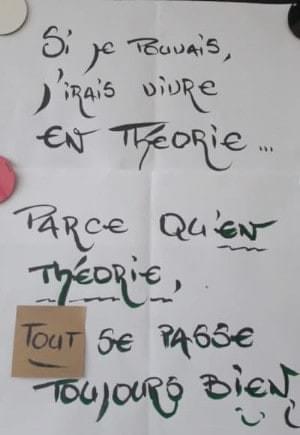 Si je POUVAIS,
j'iRAis vivRE
EN THéORiE...
PARCE QU'EN
THéORiE,
TOUT SE PASSE
TOUJOURS BiEN